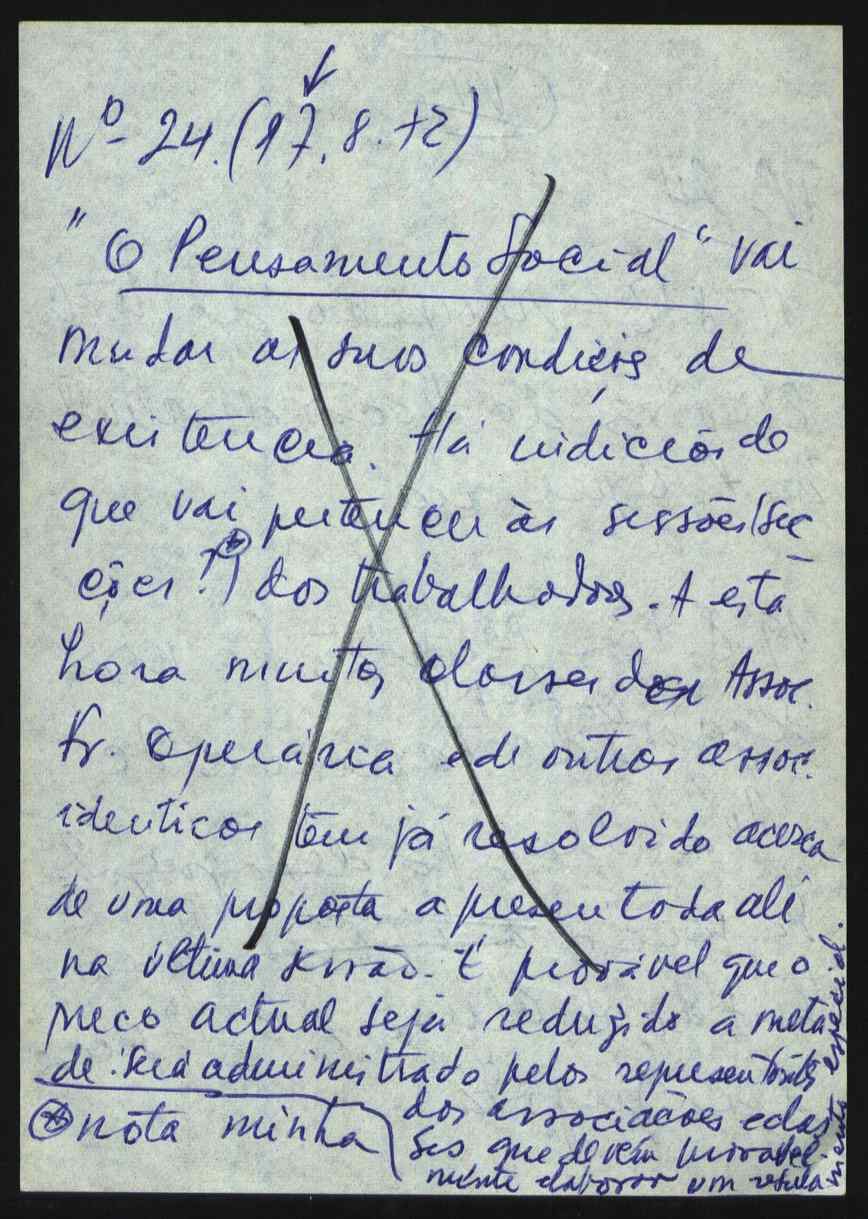 Nº 24. (17. 8. 72)
"O Pensamento Social" vai
mudar as suas condições de
existencia. Há indicios de
que vai pertencer às sessões (sec
ções?) ⊛ dos trabalhadores. A esta
hora muitas classes da Assoc.
Fr. Operária e de outras assoc.
identicas têm já resolvido acerca
de uma proposta apresentada ali
na última sessão. É provável que o
preço actual seja reduzido a meta
de. Será administrado pelos representantes
dos associações e clas
ses que devem provavel-
mente elaborar um regula-
mento especial.
⊛ nota minha